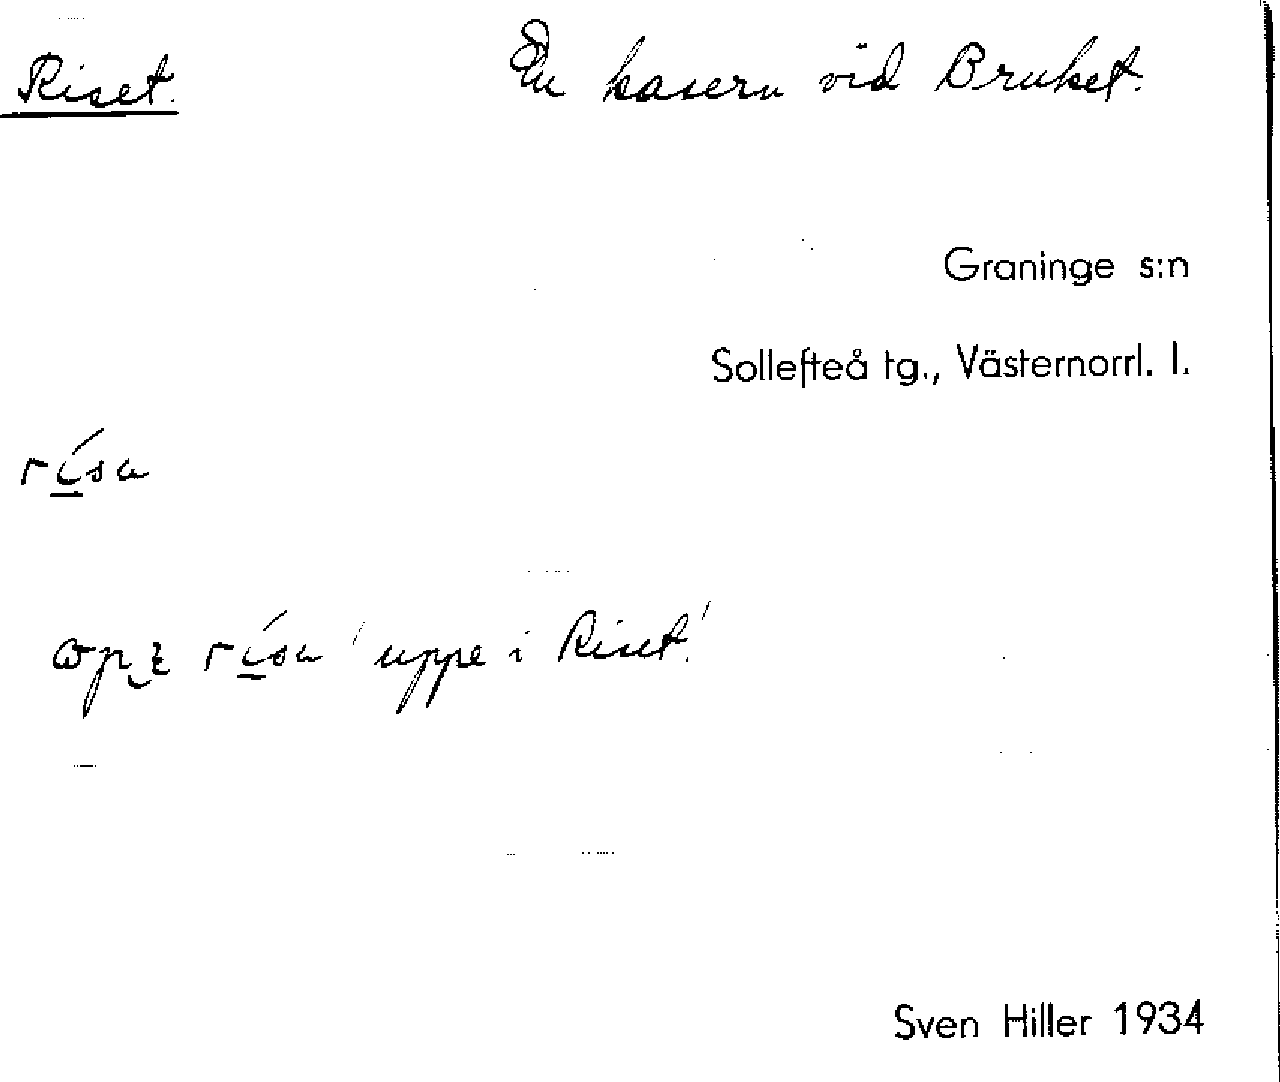 Riset. En kasern vid Bruket.
Graninge s:n
Sollefteå tg., Västernorrl. l.
rísa
rísa 'uppe i Riset.'
Sven Hiller 1934